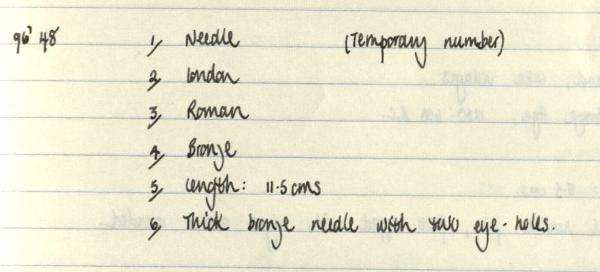 96' 48 1, Needle (Temporary number)
2, London
3, Roman
4, Bronze
5, Length: 11.5 cms
6, Thick bronze needle with two eye-holes.